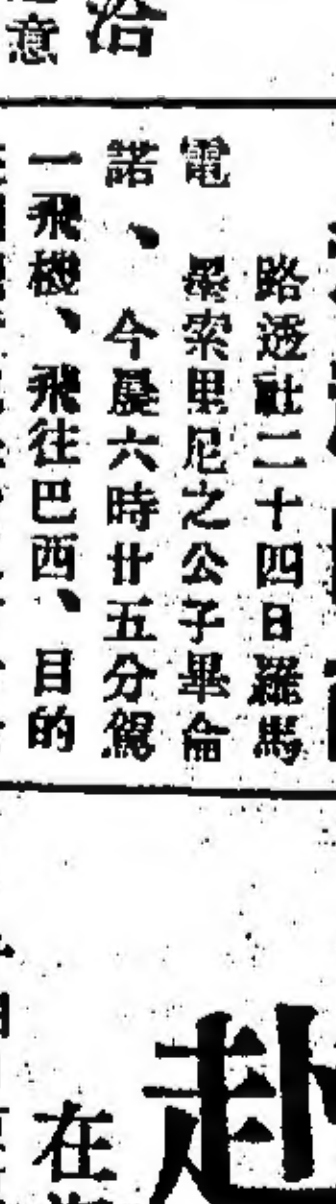 洽
意
路透社二十四日羅馬
電　墨索里尼之公子畢倫
諾、今晨六時廿五分駕
一飛機、飛往巴西、目的
赴
在